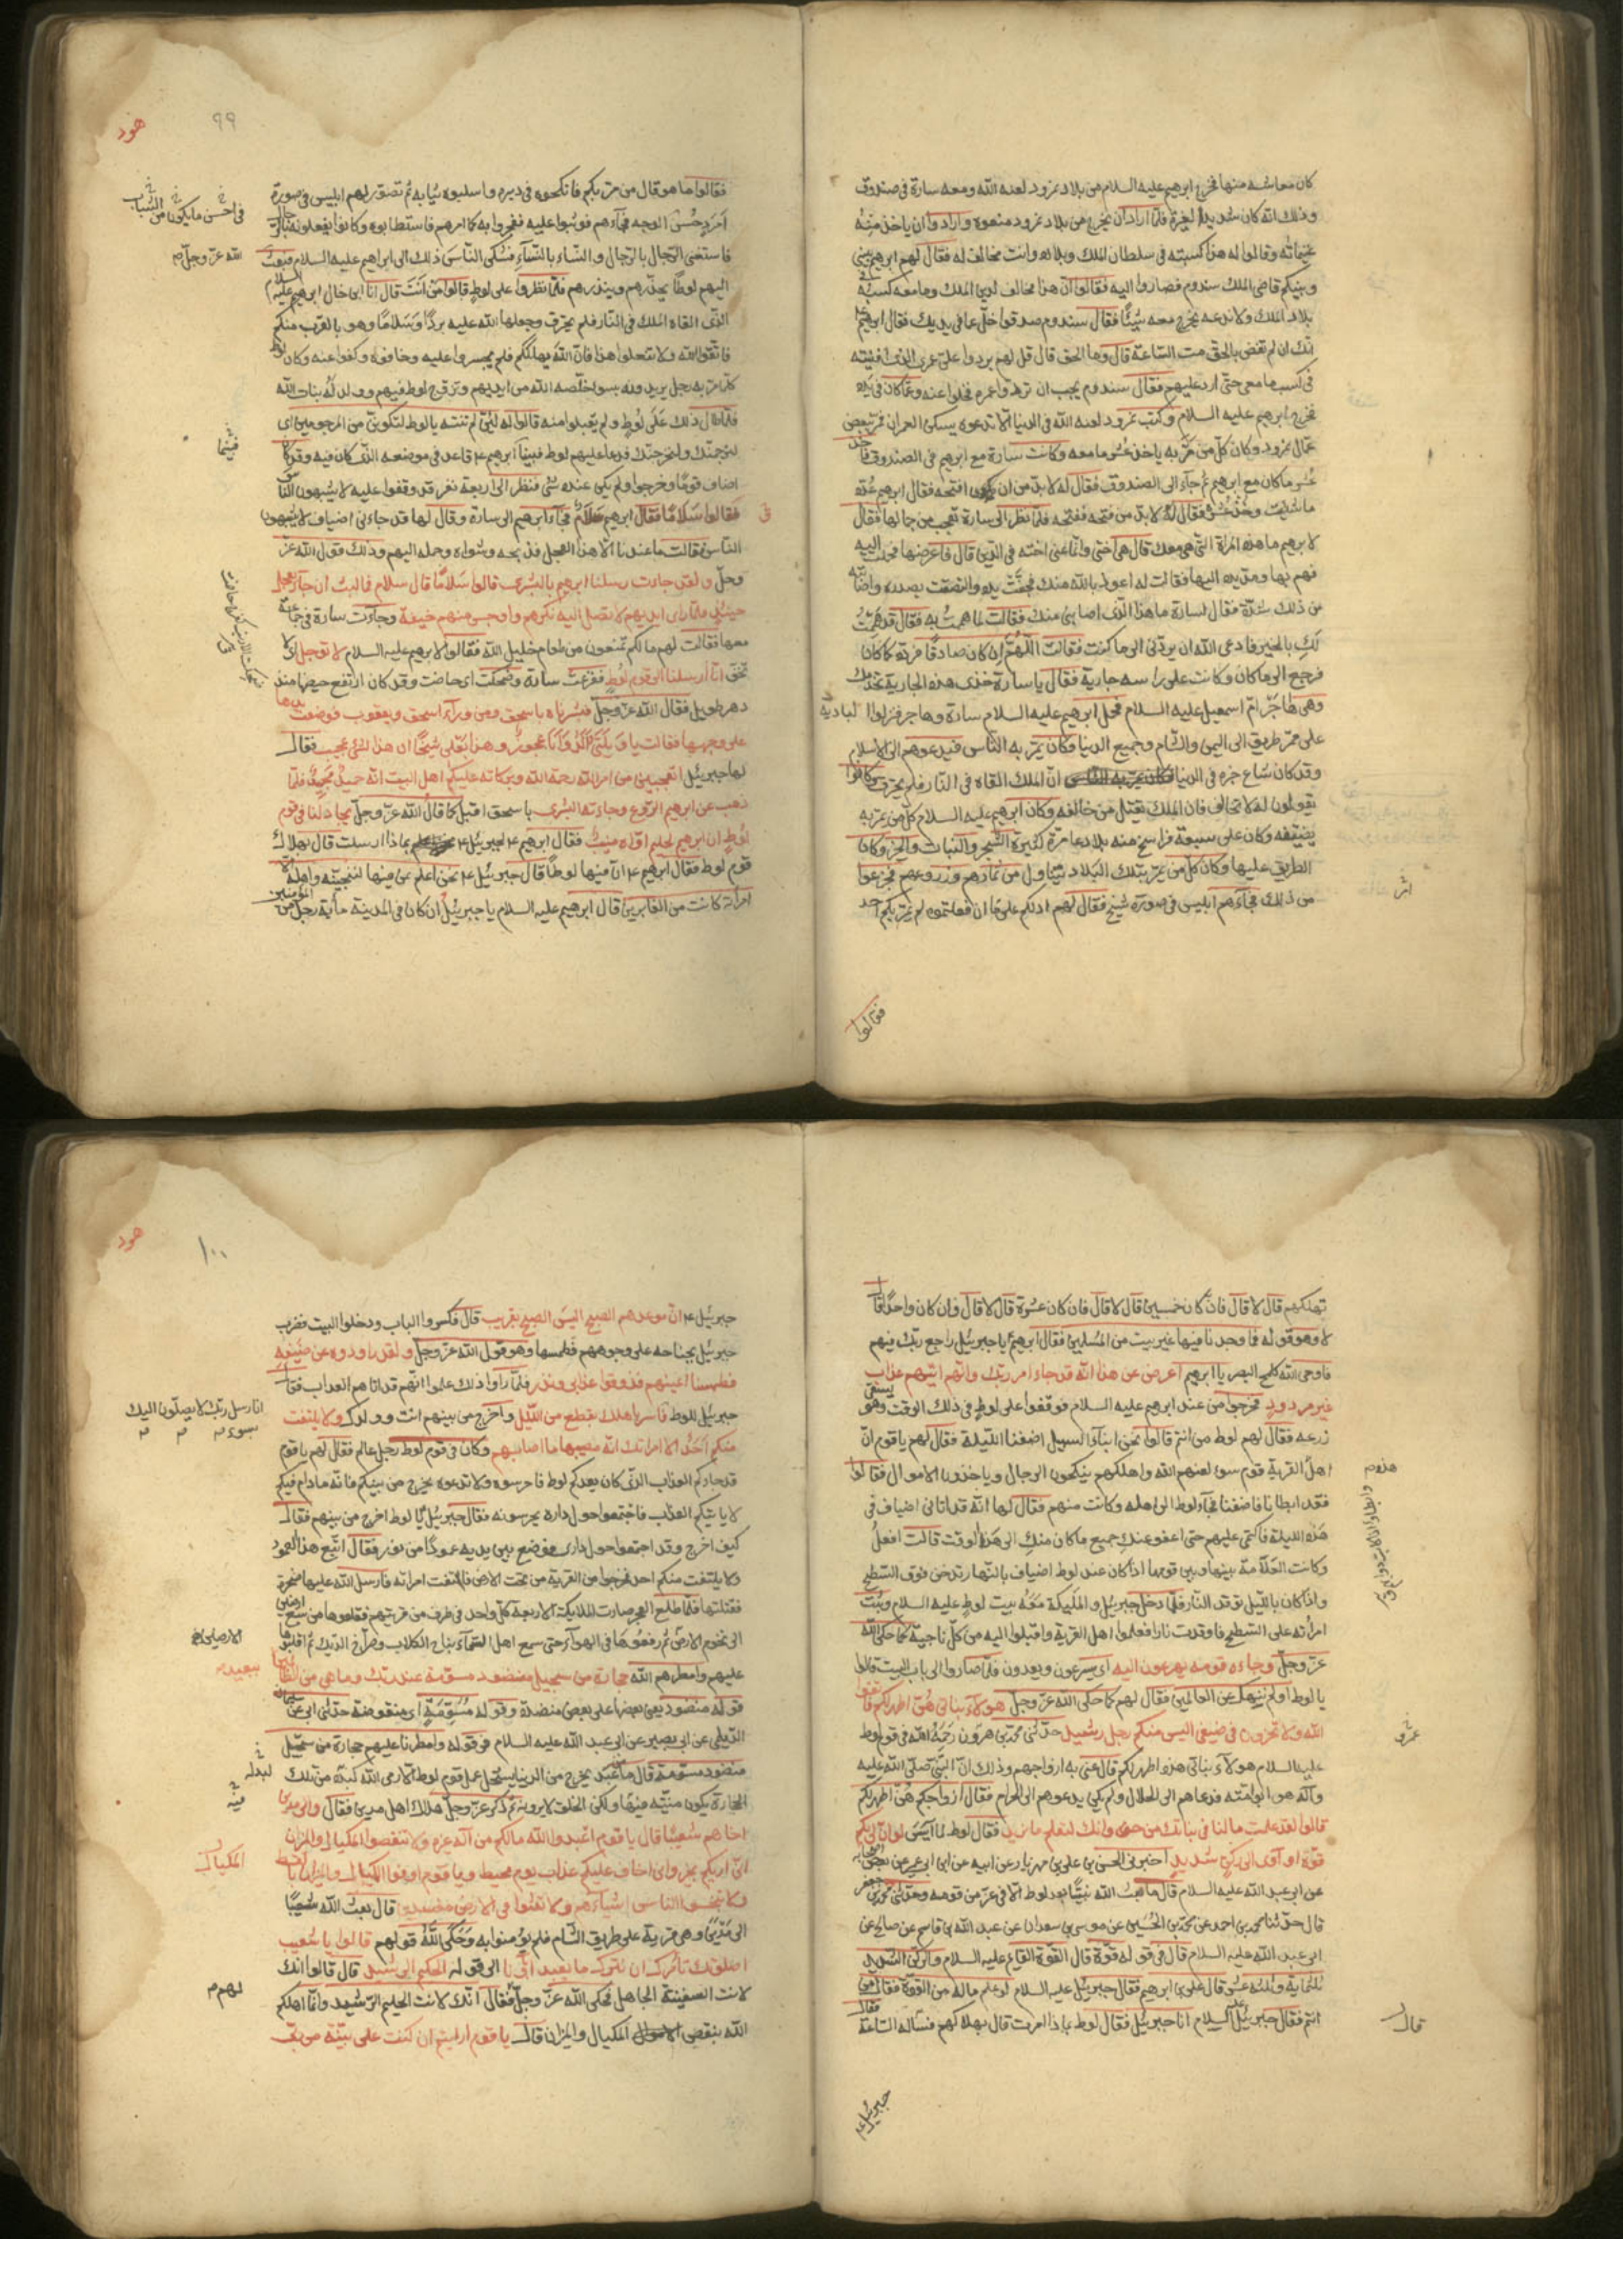 كان معاشه منها فخرج ابرهيم عليه السلام من بلاد نمرود لعنه الله ومعه سارة في صندوق
وذلك انه كان شديد الغيرة فلمّا اراد أن يخرج من بلاد نمرود منعوه وارادوا أن ياخذ منه
غنيماته وقالوا له هذا كسبته في سلطان الملك وبلاده وانت مخالف له فقال لهم ابرهيم بيني
وبينكم قاضي الملك سندوم فصاروا اليه فقالوا انّ هذا مخالف لدين الملك وما معه كسبه في
بلاد الملك ولا ندعه يخرج معه شيئًا فقال سندوم صدقوا خلّ عمّا في يديك فقال ابرهيم
انّك ان لم تقض بالحق متّ السّاعة قال وما الحق قال قل لهم يردوا عليّ عمري الذي افنيته
في كسب ما معي حتّى ارد عليهم فقال سندوم يجب ان تردوا عمره فخلوا عنه وعمّا كان في يده
فخرج ابرهيم عليه السلام وكتب نمرود لعنه الله في الدنيا ألّا تدعوه يسكن العمران فمرّ ببعض
عمّال نمرود وكان كلّ من مرّ به ياخذ عشر ما معه وكانت سارة مع ابرهيم في الصندوق فاخذ
عشر ما كان مع ابرهيم ثم جآء الى الصندوق فقال له لا بدّ من ان افتحه فقال ابرهيم عُدّه
ما شئت وخُذ عشره فقال له لا بدّ من فتحه ففتحه فلمّا نظر الى سارة تعجب من جمالها فقال
لابرهيم ما هذه المراة التي هي معك قال هي اختي وانّما عنى اخته في الدّين قال فاعرضها فحملت اليه
فهم بها ومدّ يده اليها فقالت له اعوذ بالله منك فجفّت يده والتصقت بصدره واصابته
من ذلك شدّة فقال لسارة ما هذا الّذي اصابني منك فقالت لما هممتُ به فقال قد هممتُ
لكِ بالخير فادعي الله ان يردّني الى ما كنت فقالت اللهمّ ان كان صادقًا فردّه كما كان
فرجع الى ما كان وكانت على راسه جارية فقال يا سارة خذي هذه الجارية تخدمك
وهي هاجر امّ اسمعيل عليه السلام فحمل ابرهيم عليه السلام سارة وهاجر فنزلوا البادية
على ممرّ طريق الى اليمن والشام وجميع الدنيا فكان يمرّ به النّاس فيدعوهم الى الاسلام
وقد كان شاع خبره في الدنيا انّ الملك القاه في النّار فلم يحترق وكانوا
يقولون له لا تخالف فان الملك يقتل من خالفه وكان ابرهيم عليه السلام كلّ من يمرّ به
يضيفه وكان على سبعة فراسخ منه بلاد عامرة كثيرة الشّجر والنبات والخير وكان
الطريق عليها وكان كلّ من يمرّ بتلك البلاد يتناول من ثمارهم وزروعهم فجزعوا
من ذلك فجاءهم ابليس في صورة شيخ فقال لهم ادلكم على ما ان فعلتموه لم يمرّ بكم احد
فقالوا
هود
٩٩
فقالوا ما هو قال من مرّ بكم فانكحوه في دبره واسلبوه ثيابه ثم تصوّر لهم ابليس في صورة
امرد حُسن الوجه فجآءهم فوثبوا عليه ففجروا به كما امرهم فاستطابوه وكانوا يفعلونه بالرّجال
فاستغنى الرّجال بالرّجال والنساء بالنّسآء فشكى النّاس ذلك الى ابراهيم عليه السلام فبعث
اليهم لوطًا يحذّرهم وينذرهم فلمّا نظروا على لوطٍ قالوا من انت قال انا ابن خال ابرهيم عليه السلام
الذي القاه الملك في النّار فلم يحترق وجعلها الله عليه بردًا وسلامًا وهو بالقرب منكم
فاتّقوا الله ولا تفعلوا هذا فانّ الله يهلككم فلم يجسروا عليه وخافوه وكفوا عنه وكان لوط
كلّما مرّ به رجل يريدونه بسوء خلّصه الله من ايديهم وتزوّج لوط فيهم وولد له بنات
فلمّا طال ذلك على لوطٍ ولم يقبلوا منه قالوا له لئن لم تنته يا لوط لتكوننّ من المرجومين اى
لنرجمنّك ولنخرجنّك فدعا عليهم لوط فبينا ابرهيم ع قاعد في موضعه الذي كان فيه وقد كان
اضاف قومًا وخرجوا ولم يكن عنده شئ فنظر الى اربعة نفر قد وقفوا عليه لا يشبهون النّاس
فقالوا سلامًا فقال ابرهيم سلامٌ فجاء ابرهيم الى سارة وقال لها قد جاءني اضياف لا يشبهون
النّاس قالت ما عندنا الّا هذا العجل فذبحه وشواه وحمله اليهم وذلك قول الله عزّ
وجلّ ولقد جاءت رسلنا ابرهيم بالبشرى قالوا سلامًا قال سلام فما لبث أن جآء بعجل
حنيذ فلمّا راى ايديهم لا تصل اليه نكرهم واوجس منهم خيفة وجاءت سارة في جماعة
معها فقالت لهم ما لكم تمتنعون من طعام خليل الله فقالوا لابرهيم عليه السلام لا توجل اى لا
تخف انّا ارسلنا الى قوم لوط ففزعت سارة وضحكت اى حاضت وقد كان ارتفع حيضها منذ
دهر طويل فقال الله عزّ وجلّ فبشّرناه باسحق ومن ورآء اسحق ويعقوب فوضعت يدها
على وجهها فقالت يا ويلتى ءألد وانا عجوزٌ وهذا بعلى شيخًا ان هذا لشئ عجيب فقال
لها جبرئيل اتعجبين من امر الله رحمة الله وبركاته عليكم اهل البيت انّه حميدٌ مجيدٌ فلمّا
ذهب عن ابرهيم الرّوع وجاءته البشرى باسحق اقبل كما قال الله عزّ وجلّ يجادلنا في قوم
لوط ان ابرهيم لحليم اوّاه منيبٌ فقال ابرهيم ع لجبرئيل ع بماذا ارسلت قال بهلاك
قوم لوط فقال ابرهيم ع انّ فيها لوطًا قال جبرئيل ع نحن اعلم بمن فيها لننجينّه واهله الّا
امرأته كانت من الغابرين قال ابرهيم عليه السلام يا جبرئيل ان كان في المدينة مأية رجل من المؤمنين
في احسن ما يكون من الشباب
الله عزّ وجلّ
فبينما
تهلكهم قال لا قال فان كان خمسين قال لا قال فان كان عشرة قال لا قال وان كان واحدًا قال
لا وهو قوله فما وجدنا فيها غير بيت من المسلمين فقال ابرهيم يا جبرئيل راجع ربّك فيهم
فاوحى الله كلمح البصر يا ابرهيم اعرض عن هذا انّه قد جاء امر ربّك وانّهم اتيهم عذاب
غير مردودٍ فخرجوا من عند ابرهيم عليه السلام فوقفوا على لوطٍ في ذلك الوقت وهو يسقي
زرعه فقال لهم لوط من انتم قالوا نحن ابنآء السبيل اضفنا الليلة فقال لهم يا قوم انّ
اهل القرية قوم سوء لعنهم الله واهلكهم ينكحون الرجال وياخذون الاموال فقالوا
فقد ابطانا فاضفنا فجآء لوط الى اهله وكانت منهم فقال لها انّه قد اتاني اضياف في
هذه الليلة فاكتمي عليهم حتى اعفو عنكِ جميع ما كان منكِ الى هذا الوقت قالت افعلُ
وكانت العلامة بينها وبين قومها اذا كان عند لوط اضياف بالنّهار تدخن فوق السّطح
واذا كان بالليل توقد النّار فلمّا دخل جبرئيل والملايكة معه بيت لوطٍ عليه السلام وثبت
امرأته على السّطح فاوقدت نارًا فعلموا اهل القرية واقبلوا اليه من كلّ ناحية كما حكى الله
عزّ وجلّ وجاءه قومه يهرعون اليه اى يسرعون ويعدون فلمّا صاروا الى باب البيت قالوا
يا لوط اولم ننهك عن العالمين فقال لهم كما حكى الله عزّ وجلّ هولآء بناتي هنّ اطهر لكم فاتقوا
الله ولا تخزون في ضيفي اليس منكم رجل رشيد حدّثني محمّد بن هرون رحمه الله في قول لوط
عليه السلام هولآء بناتي هنّ اطهر لكم قال عنى به ازواجهم وذلك انّ النبيّ صلّى الله عليه
وآله هو ابو امّته فدعاهم الى الحلال ولم يكن يدعوهم الى الحرام فقال ازواجكم هنّ اطهر لكم
قالوا لقد علمت ما لنا في بناتك من حق وانّك لتعلم ما نريد فقال لوط لما آيس لو انّ لي بكم
قوّة او آوي الى ركن شديدٍ اخبرني الحسن بن علي بن مهزيار عن ابيه عن ابن ابي عمير عن بعض اصحابه
عن ابي عبد الله عليه السلام قال ما بعث الله نبيًّا بعد لوط الّا في عزّ من قومه وحدّثني محمّد بن جعفر
قال حدّثنا محمد بن احمد عن محمّد بن الحسين عن موسى بن سعدان عن عبد الله بن قاسم عن صالح عن
ابي عبد الله عليه السلام قال في قوله قوّة قال القوّة القايم عليه السلام والركن الشّديد
ثلثماية وثلثة عشر قال علي بن ابرهيم فقال جبرئيل عليه السلام لو علم ماله من القوّة فقال من
انتم فقال جبرئيل عليه السلام انا جبرئيل فقال لوط بماذا امرت قال بهلاكهم فسأله السّاعة فقال
قال
جبرئيل ع
هود
١٠٠
جبرئيل ع انّ موعدهم الصبح اليس الصبح بقريب قال فكسروا الباب ودخلوا البيت فضرب
جبرئيل بجناحه على وجوههم فطمسها وهو قول الله عزّ وجلّ ولقد راودوه عن ضيفه
فطمسنا اعينهم فذوقوا عذابي ونذر فلمّا رأوا ذلك علموا انّهم قد اتاهم العذاب فقال
جبرئيل للوط فاسر باهلك بقطع من الليل واخرج من بينهم انت وولدك ولا يلتفت
منكم احدٌ الّا امراتك انّه مصيبها ما اصابهم وكان في قوم لوط رجل عالم فقال لهم يا قوم
قد جاءكم العذاب الذي كان يعدكم لوط فاحرسوه ولا تدعوه يخرج من بينكم فانّه ما دام فيكم
لا ياتيكم العذاب فاجتمعوا حول داره يحرسونه فقال جبرئيل يا لوط اخرج من بينهم فقال
كيف اخرج وقد اجتمعوا حول داري فوضع بين يديه عمودًا من نور فقال اتّبع هذا العمود
ولا يلتفت منكم احد فخرجوا من القرية من تحت الارض فالتفتت امراته فارسل الله عليها صخرة
فقتلتها فلمّا طلع الفجر صارت الملايكة الاربعة كلّ واحد في طرف من قريتهم فقلعوها من سبع ارضين
الى تخوم الارض ثم رفعوها في الهوآء حتى سمع اهل السّمآء نباح الكلاب وصراخ الديك ثم اقلبوها
عليهم وامطرهم الله حجارة من سجيل منضود مسوّمة عند ربّك وما هي من الظالمين
قوله منضود يعني بعضها على بعض منضدة وقوله مسوّمةٍ اى منقوطة حدّثني ابي عن سليمان
الدّيلمي عن ابي بصير عن ابي عبد الله عليه السلام في قوله وامطرنا عليهم حجارة من سجّيل
منضود مسوّمة قال ما من عبد يخرج من الدنيا يستحل عمل قوم لوط الّا رمى الله كبده من تلك
الحجارة يكون منيّته فيها ولكن الخلق لا يرونه ثم ذكر عزّ وجلّ هلاك اهل مدين فقال والى مدين
اخاهم شعيبًا قال يا قوم اعبدوا الله ما لكم من اله غيره ولا تنقصوا المكيال والميزان
انّي اريكم بخير واني اخاف عليكم عذاب يوم محيط ويا قوم اوفوا المكيال والميزان بالقسط
ولا تبخسوا الناس اشيآءهم ولا تعثوا في الارض مفسدين قال بعث الله شعيبًا
الى مدين وهي قرية على طريق الشام فلم يؤمنوا به وحكى الله قولهم قالوا يا شعيب
اصلوتك تامرك ان نترك ما يعبد آباؤنا الى قوله الحليم الرشيد قال قالوا انّك
لانت السفيه الجاهل فحكى الله عزّ وجلّ فقال انّك لانت الحليم الرّشيد وانّما اهلكهم
الله بنقص المكيال والميزان قال يا قوم ارايتم ان كنت على بيّنة من ربّي
انا رسل ربّك لا يصلون اليك
الارضين
ببعيد
المكيال
لهم